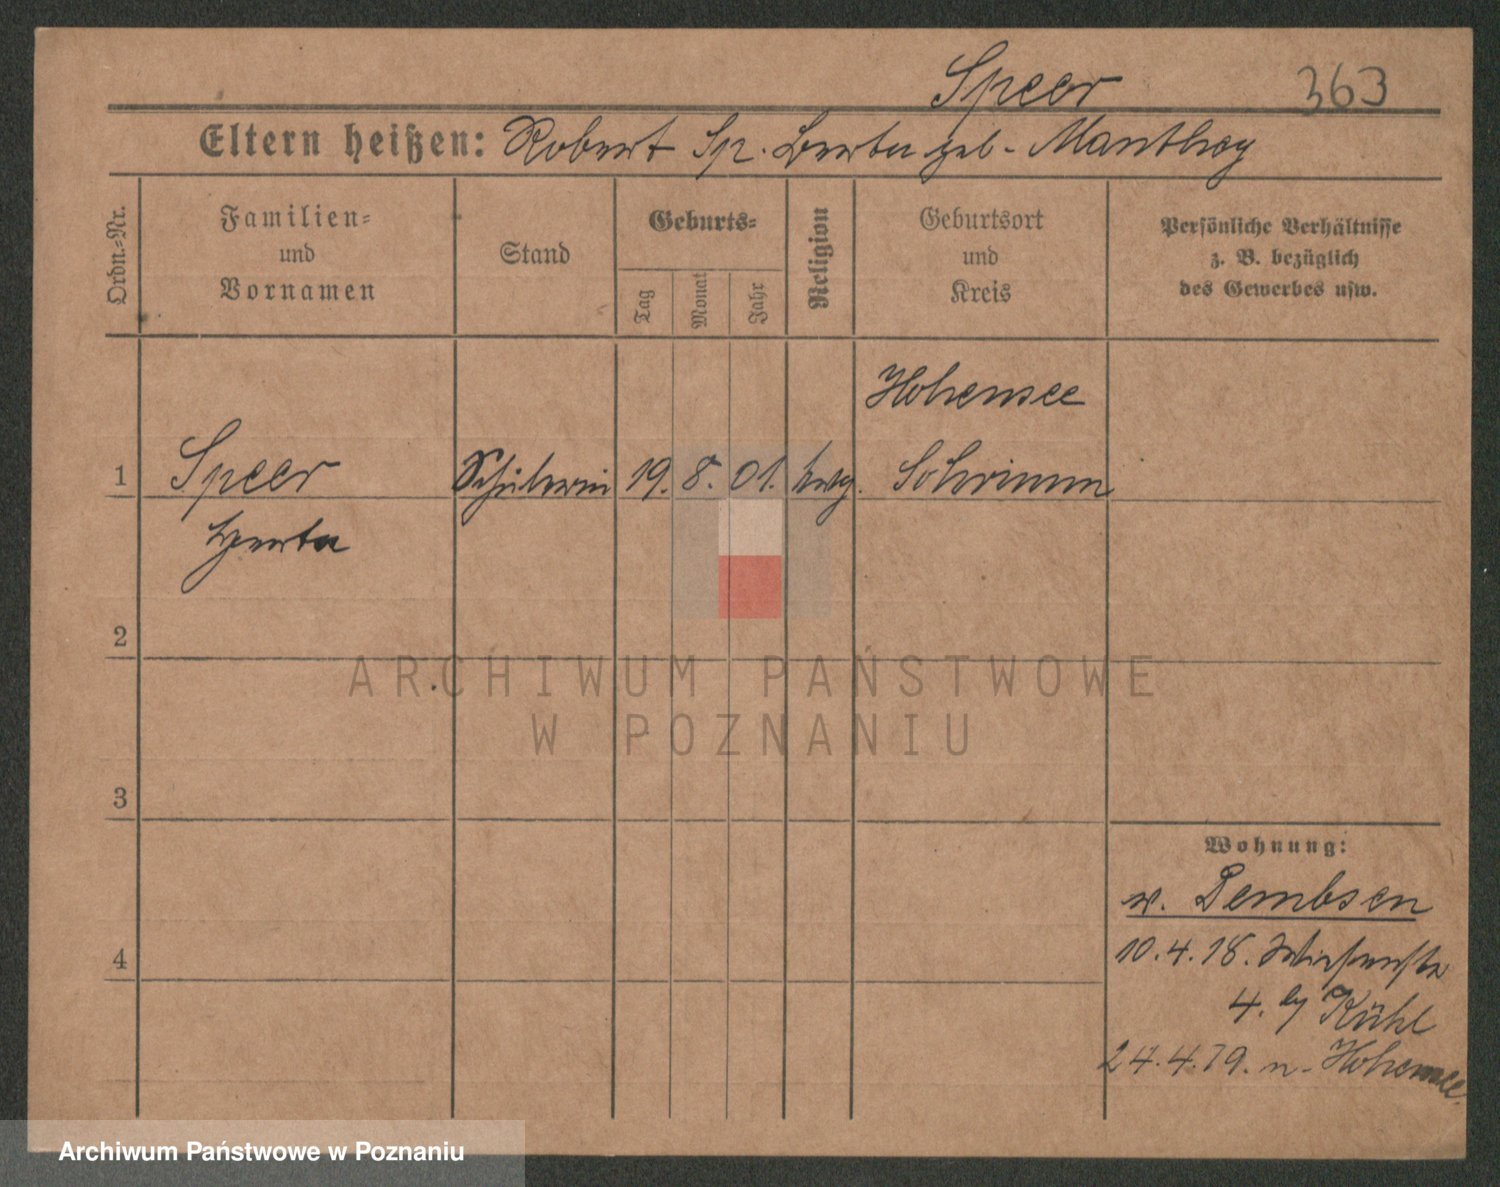 Speer 363
Eltern heißen: Robert Sp. Berta geb. Manthey
Ordn.-Nr.
Familien-
und
Vornamen
Stand
Geburts-
Tag
Monat
Jahr
Religion
Geburtsort
und
Kreis
Persönliche Verhältnisse
z. B. bezüglich
des Gewerbes usw.
Hohensee
1 Speer Schülerin 19. 8. 01. evg. Schrimm
2
3
4
Wohnung:
v. Dembsen
10.4.18.
4. by Kühl
24.4.19. n. Hohensee.
ARCHIWUM PAŃSTWOWE
W POZNANIU
Archiwum Państwowe w Poznaniu